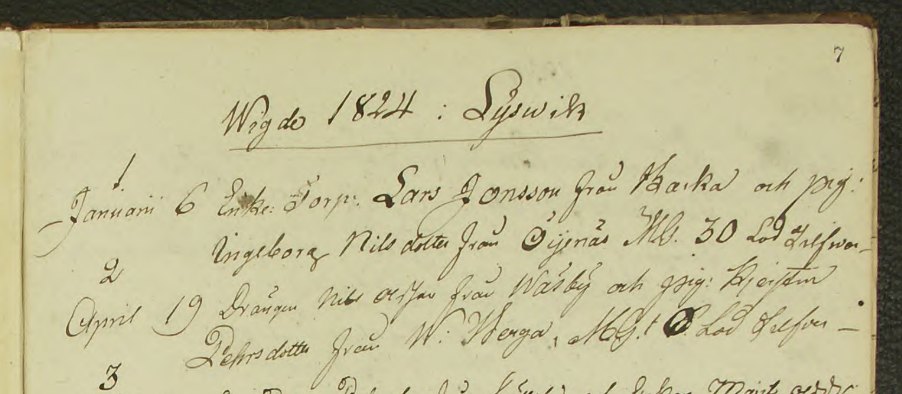 7
Wigde 1824 : Lyswik
1
Januarii 6 Enke: Torp: Lars Jonsson från Backa och pig:
Ingeborg Nilsdotter från Öijenäs MG. 30 Lod Silfwer
2
April 19 Drängen Nils från Wäsby och pig: Kjerstin
Pehrsdotter från W: Berga, MG: 8 Lod Silfver
3